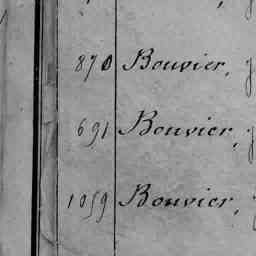 870 Bouvier,
691 Bouvier,
1059 Bouvier,